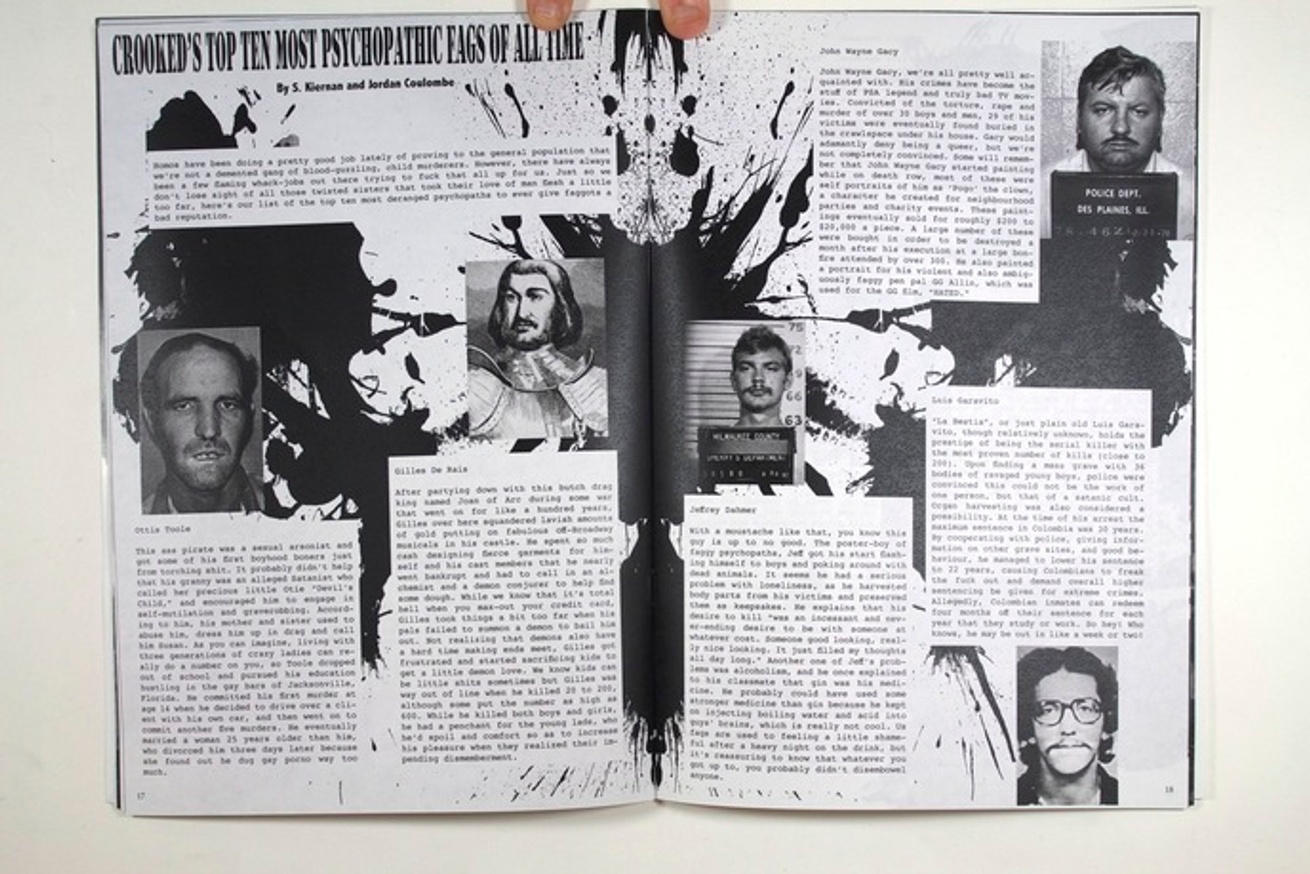 CROOKED'S TOP TEN MOST PSYCHOPATHIC FAGS OF ALL TIME
By S. Kiernan and Jordan Coulombe
Homos have been doing a pretty good job lately of proving to the general population that
we're not a demented gang of blood-guzzling, child murderers. However, there have always
been a few flaming whack-jobs out there trying to fuck that all up for us. Just so we
don't lose sight of all those twisted sisters that took their love of man flesh a little
too far, here's our list of the top ten most deranged psychopaths to ever give faggots a
bad reputation.
Ottis Toole
This ass pirate was a sexual arsonist and
got some of his first boyhood boners just
from torching shit. It probably didn't help
that his granny was an alleged Satanist who
called her precious little Otie "Devil's
Child," and encouraged him to engage in
self-mutilation and graverobbing. Accord-
ing to him, his mother and sister used to
abuse him, dress him up in drag and call
him Susan. As you can imagine, living with
three generations of crazy ladies can re-
ally do a number on you, so Toole dropped
out of school and pursued his education
hustling in the gay bars of Jacksonville,
Florida. He committed his first murder at
age 14 when he decided to drive over a cli-
ent with his own car, and then went on to
commit another five murders. He eventually
married a woman 25 years older than him,
who divorced him three days later because
she found out he dug gay porno way too
much.
17
Gilles De Rais
After partying down with this butch drag
king named Joan of Arc during some war
that went on for like a hundred years,
Gilles over here squandered lavish amounts
of gold putting on fabulous off-Broadway
musicals in his castle. He spent so much
cash designing fierce garments for him-
self and his cast members that he nearly
went bankrupt and had to call in an al-
chemist and a demon conjurer to help find
some dough. While we know that it's total
hell when you max-out your credit card,
Gilles took things a bit too far when his
pals failed to summon a demon to bail him
out. Not realizing that demons also have
a hard time making ends meet, Gilles got
frustrated and started sacrificing kids to
get a little demon love. We know kids can
be little shits sometimes but Gilles was
way out of line when he killed 20 to 200,
although some put the number as high as
600. While he killed both boys and girls,
he had a penchant for the young lads, who
he'd spoil and comfort so as to increase
his pleasure when they realized their im-
pending dismemberment.
75
72
66
63
MILWAUKEE COUNTY
SHERIFF'S DEPARTMENT
Jeffrey Dahmer
With a moustache like that, you know this
guy is up to no good. The poster-boy of
faggy psychopaths, Jeff got his start flash-
ing himself to boys and poking around with
dead animals. It seems he had a serious
problem with loneliness, as he harvested
body parts from his victims and preserved
them as keepsakes. He explains that his
desire to kill "was an incessant and nev-
er-ending desire to be with someone at
whatever cost. Someone good looking, real-
ly nice looking. It just filled my thoughts
all day long." Another one of Jeff's prob-
lems was alcoholism, and he once explained
to his classmate that gin was his medi-
cine. He probably could have used some
stronger medicine than gin because he kept
on injecting boiling water and acid into
guys' brains, which is really not cool. Us
fags are used to feeling a little shame-
ful after a heavy night on the drink, but
it's reassuring to know that whatever you
got up to, you probably didn't disembowel
anyone.
John Wayne Gacy
John Wayne Gacy, we're all pretty well ac-
quainted with. His crimes have become the
stuff of PSA legend and truly bad TV mov-
ies. Convicted of the torture, rape and
murder of over 30 boys and men, 29 of his
victims were eventually found buried in
the crawlspace under his house. Gacy would
adamantly deny being a queer, but we're
not completely convinced. Some will remem-
ber that John Wayne Gacy started painting
while on death row, most of these were
self portraits of him as 'Pogo' the clown,
a character he created for neighbourhood
parties and charity events. These paint-
ings eventually sold for roughly $200 to
$20,000 a piece. A large number of these
were bought in order to be destroyed a
month after his execution at a large bon-
fire attended by over 300. He also painted
a portrait for his violent and also ambig-
uously faggy pen pal GG Allin, which was
used for the GG film, "HATED."
POLICE DEPT.
DES PLAINES, ILL.
Luis Garavito
"La Bestia", or just plain old Luis Gara-
vito, though relatively unknown, holds the
prestige of being the serial killer with
the most proven number of kills (close to
200). Upon finding a mass grave with 36
bodies of ravaged young boys, police were
convinced this could not be the work of
one person, but that of a satanic cult.
Organ harvesting was also considered a
possibility. At the time of his arrest the
maximum sentence in Colombia was 30 years.
By cooperating with police, giving infor-
mation on other grave sites, and good be-
haviour, he managed to lower his sentence
to 22 years, causing Colombians to freak
the fuck out and demand overall higher
sentencing be given for extreme crimes.
Allegedly, Colombian inmates can redeem
four months off their sentence for each
year that they study or work. So hey! Who
knows, he may be out in like a week or two!
18